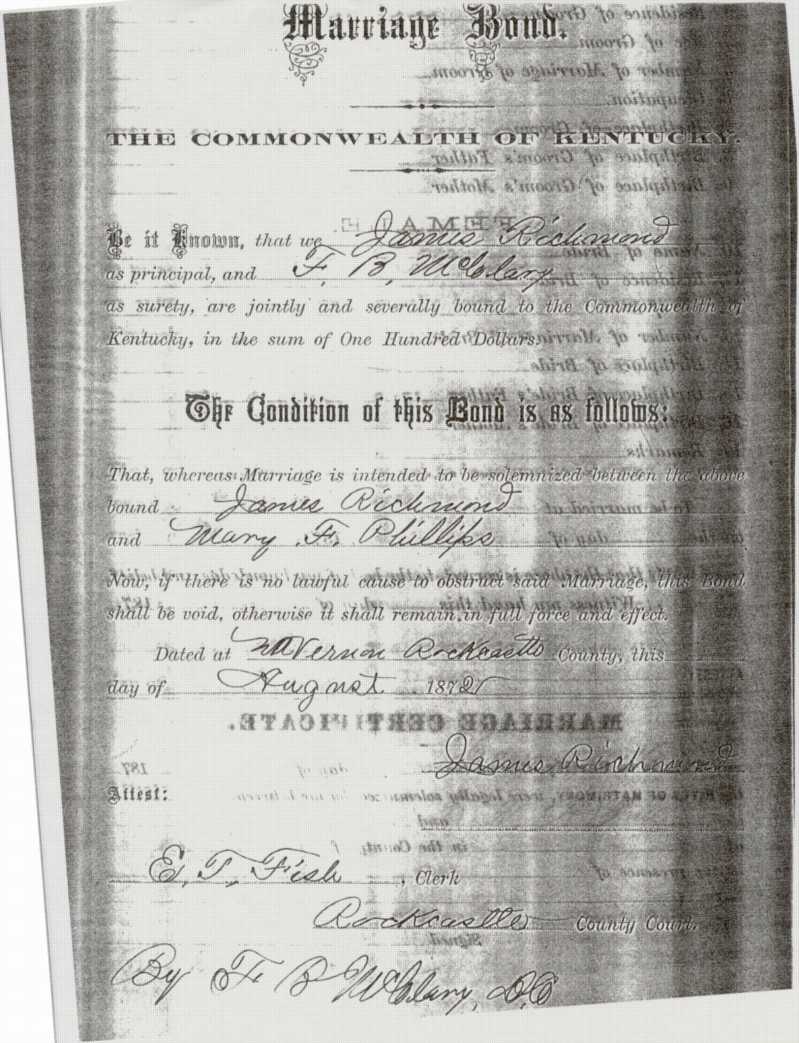 Marriage Bond.
THE COMMONWEALTH OF KENTUCKY.
Be it Known, that we James Richmond
as principal, and F. B. McClary
as surety, are jointly and severally bound to the Commonwealth of
Kentucky, in the sum of One Hundred Dollars.
The Condition of this Bond is as follows:
That, whereas Marriage is intended to be solemnized between the above
bound James Richmond
and Mary F. Phillips
Now, if there is no lawful cause to obstruct said Marriage, this Bond
shall be void, otherwise it shall remain in full force and effect.
Dated at Mt Vernon Rockcastle County, this
day of August 187
James Richmond
Attest:
E. T. Fish, Clerk
Rockcastle County Court.
By F B McClary, D.C